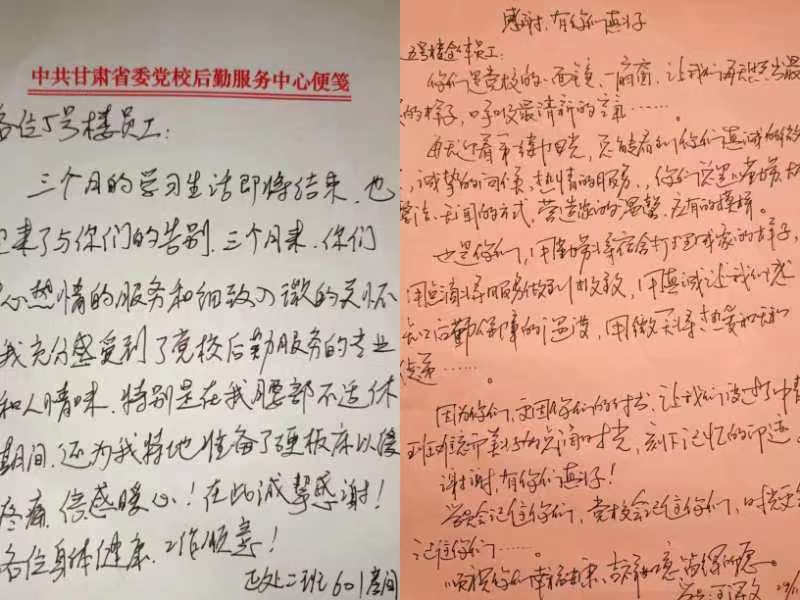 中共甘肃省委党校后勤服务中心便笺
各位5号楼员工：
三个月的学习生活即将结束，也
迎来了与你们的告别，三个月来，你们
心热情的服务和细致入微的关怀
我充分感受到了党校后勤服务的专业
和人情味，特别是在我腰部不适休
期间，还为我特地准备了硬板床以缓
疼痛，倍感暖心！在此诚挚感谢！
各位身体健康、工作顺意！
正处二班601房间
感谢，有你们真好
五号楼全体员工：
你们是党校的一面镜、一扇窗，让我们每天照出最
的样子，呼吸最清新的空气……。
每天迎着第一缕阳光，总能看到你们真诚的微
，诚挚的问候，热情的服务，你们总是
的方式，营造家的温馨、应有的模样。
也是你们，用勤劳将宿舍打理成家的样子，
用点滴将服务做到极致，用真诚让我们感
后勤保障的温度，用微笑将热爱和
传递……。
因为你们，更因你们的付出，让我们度过了中青
班难忘而美好的时光，刻下记忆的印迹。
谢谢，有你们真好！
学员会记住你们，党校会记住你们，时光更会
记住你们……。
顺祝你们幸福安康、吉祥如意、皆得所愿。
学员：